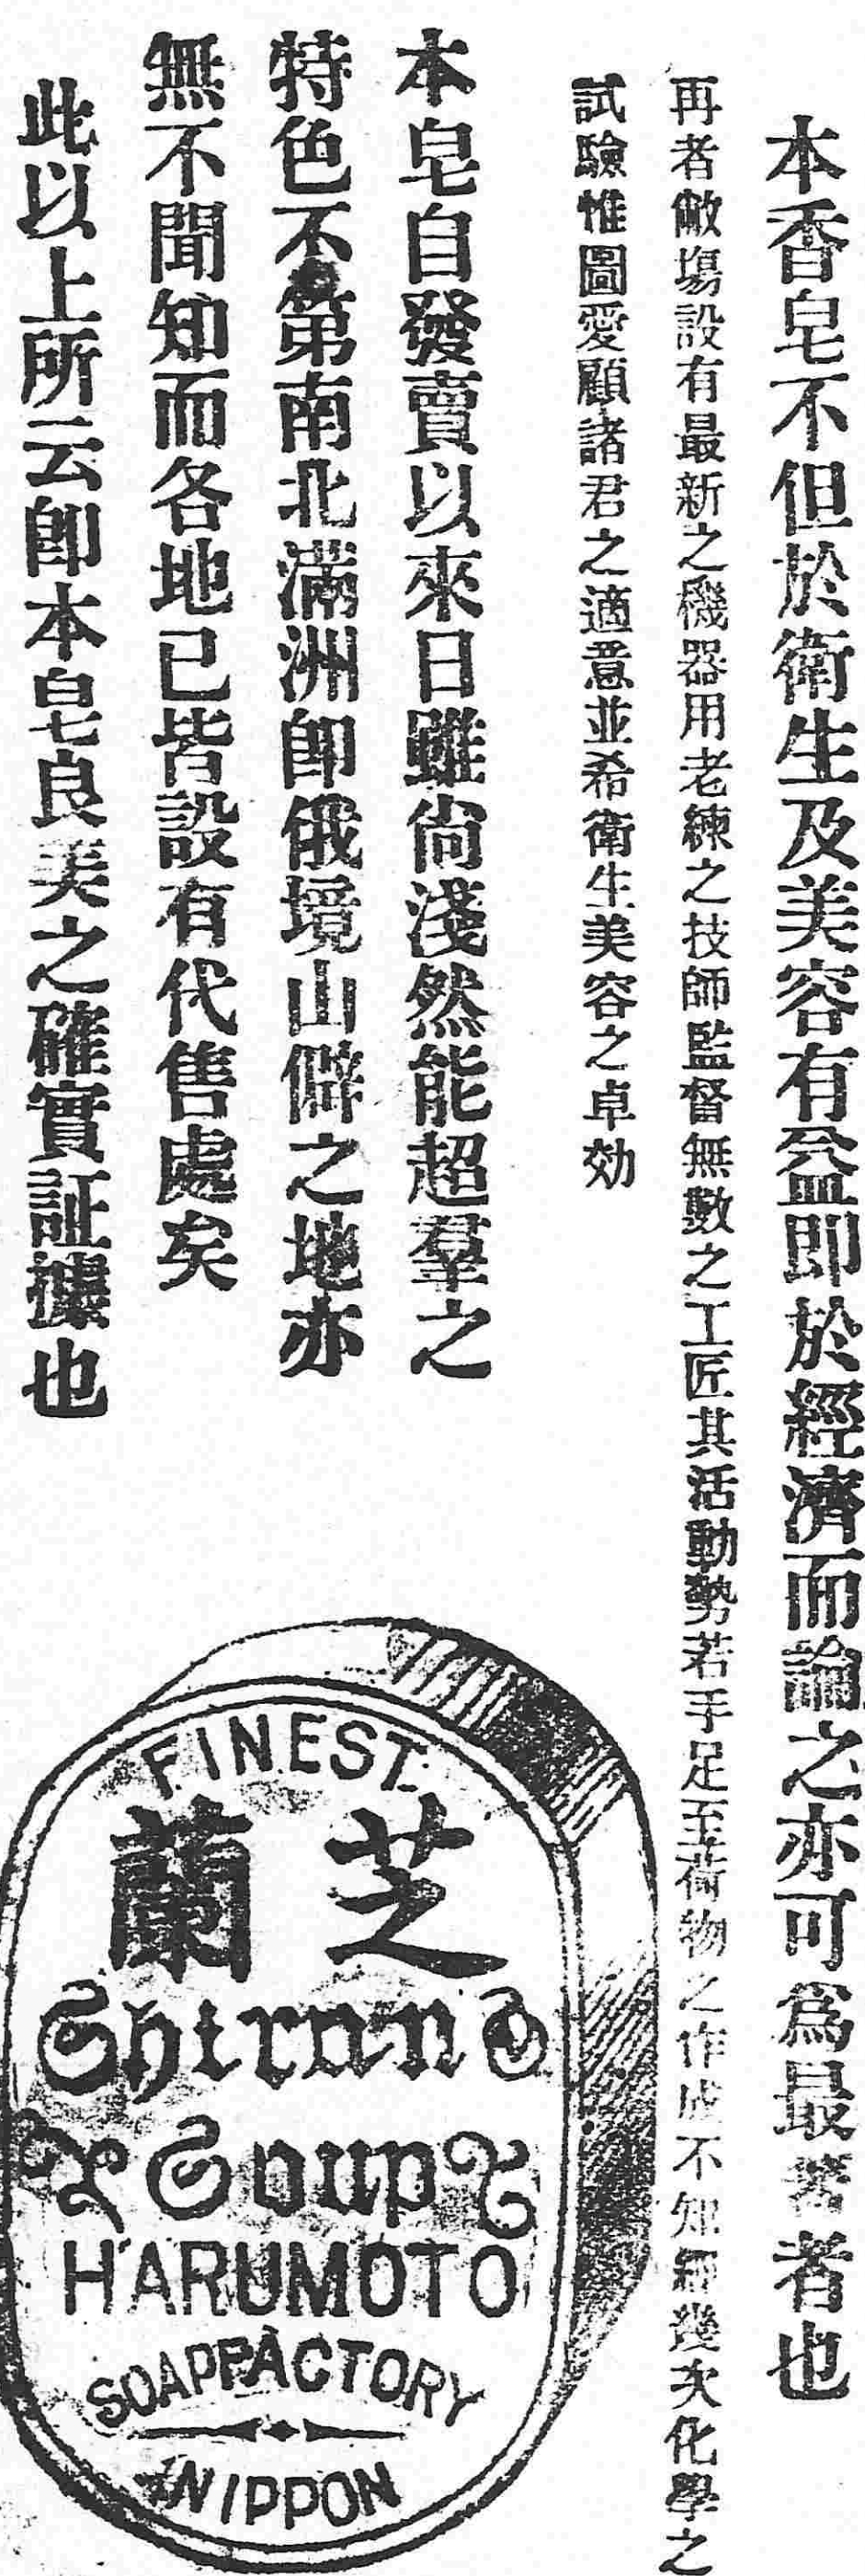 本香皂不但於衛生及美容有益即於經濟而論之亦可爲最著者也
再者敝塲設有最新之機器用老練之技師監督無數之工匠其活動勢若手足至荷物之作成不知經幾次化學之
試驗惟圖愛顧諸君之適意並希衛生美容之卓効
本皂自發賣以來日雖尙淺然能超羣之
特色不第南北滿洲卽俄境山僻之地亦
無不聞知而各地已皆設有代售處矣
此以上所云卽本皂良美之確實証據也
FINEST
芝蘭
Shirano
Soup
HARUMOTO
SOAPFACTORY
NIPPON